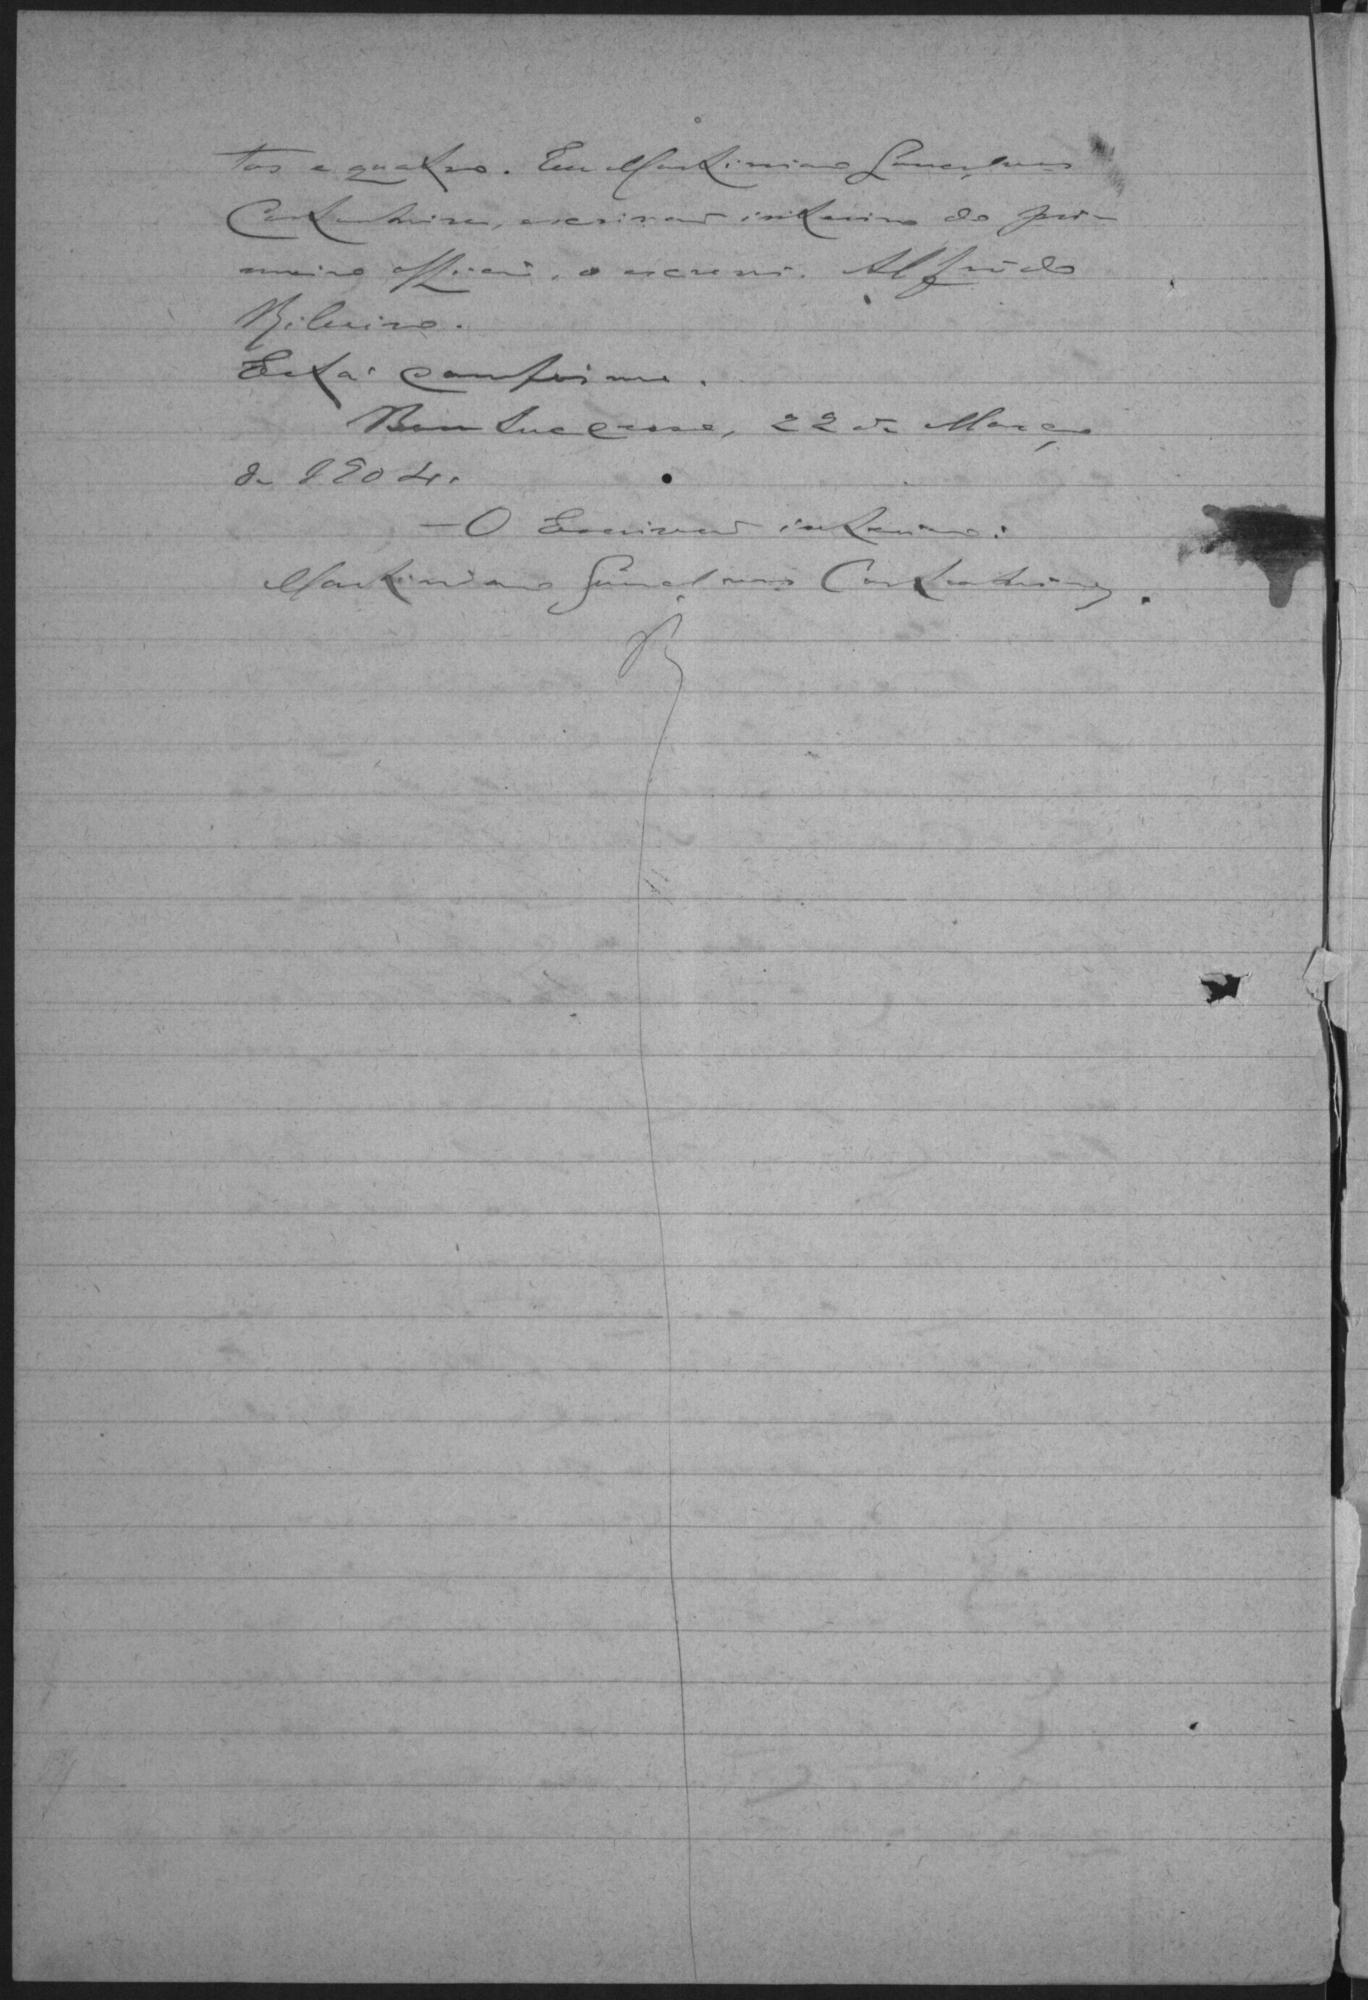 tos e quatro. Eu Martiniano Gonçalves
Castanheira, escrivão interino do pri-
meiro officio, o escrevi. Alfredo
Ribeiro.
Está conforme.
Bom Successo, 22 de Março
de 1904.
— O Escrivão interino:
Martiniano Gonçalves Castanheira.